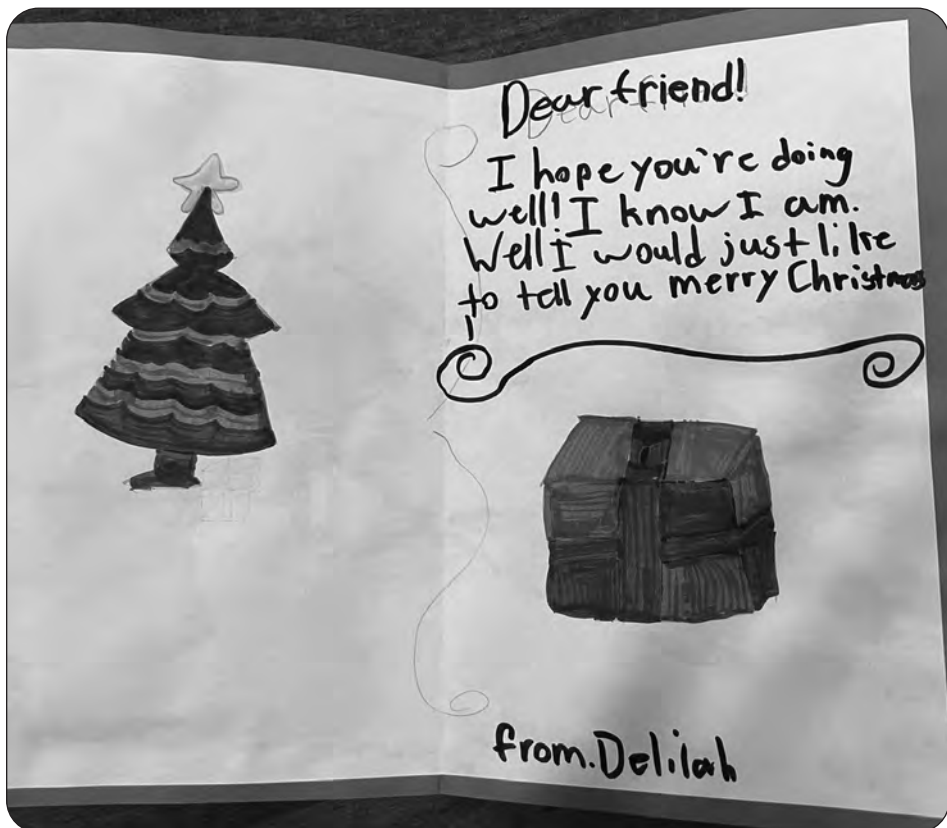 Dear friend!
I hope you're doing
well! I know I am.
Well I would just like
to tell you merry Christmas
!
from. Delilah